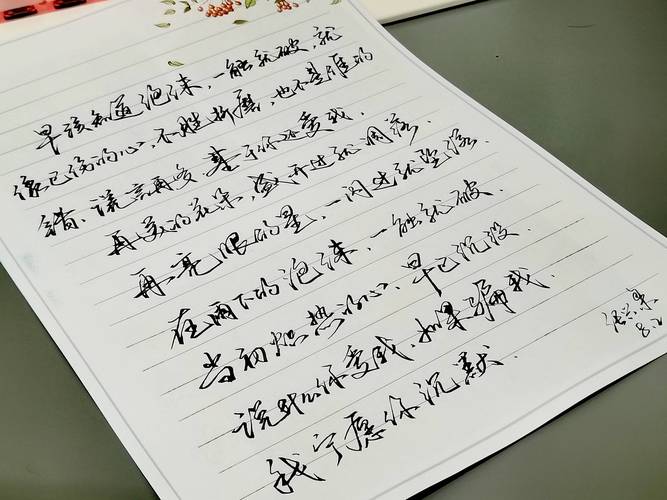 早该知道泡沫，一触就破，就
像已伤的心，不胜折磨，也不是谁的
错，谎言再多，基于你还爱我．
再美的花朵，盛开过就凋落．
再亮眼的星，一闪过就坠落．
在雨下的泡沫，一触就破．
当初炽热的心，早已沉没．
说什么你爱我，如果骗我．
我宁愿你沉默．
8.2